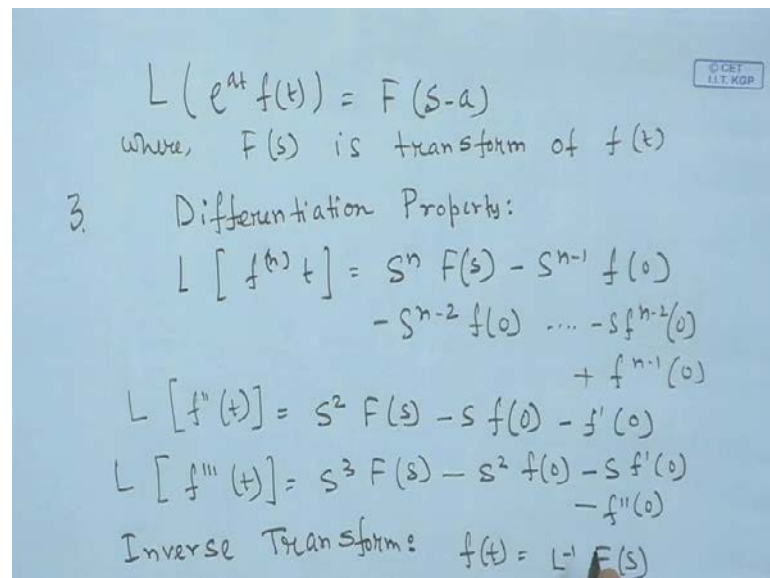 L ( e^{at} f(t)) = F (S-a)
© CET
I.I.T. KGP
where, F(s) is transform of f(t)
3. Differentiation Property:
L [ f^{(n)} t ] = S^n F(s) - S^{n-1} f(0)
- S^{n-2} f(0) .... - s f^{n-2}(0)
+ f^{n-1}(0)
L [f''(t)] = S^2 F(s) - s f(0) - f'(0)
L [ f''' (t)] = S^3 F(s) - S^2 f(0) - S f'(0)
- f''(0)
Inverse Transform: f(t) = L^{-1} F(s)